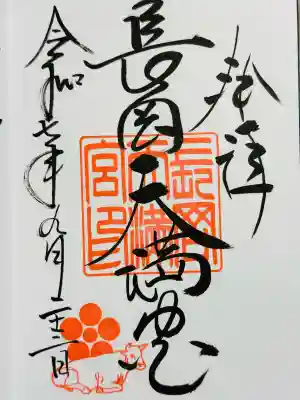 奉拝
長岡天満宮
長岡
天満
宮印
令和七年九月二十三日